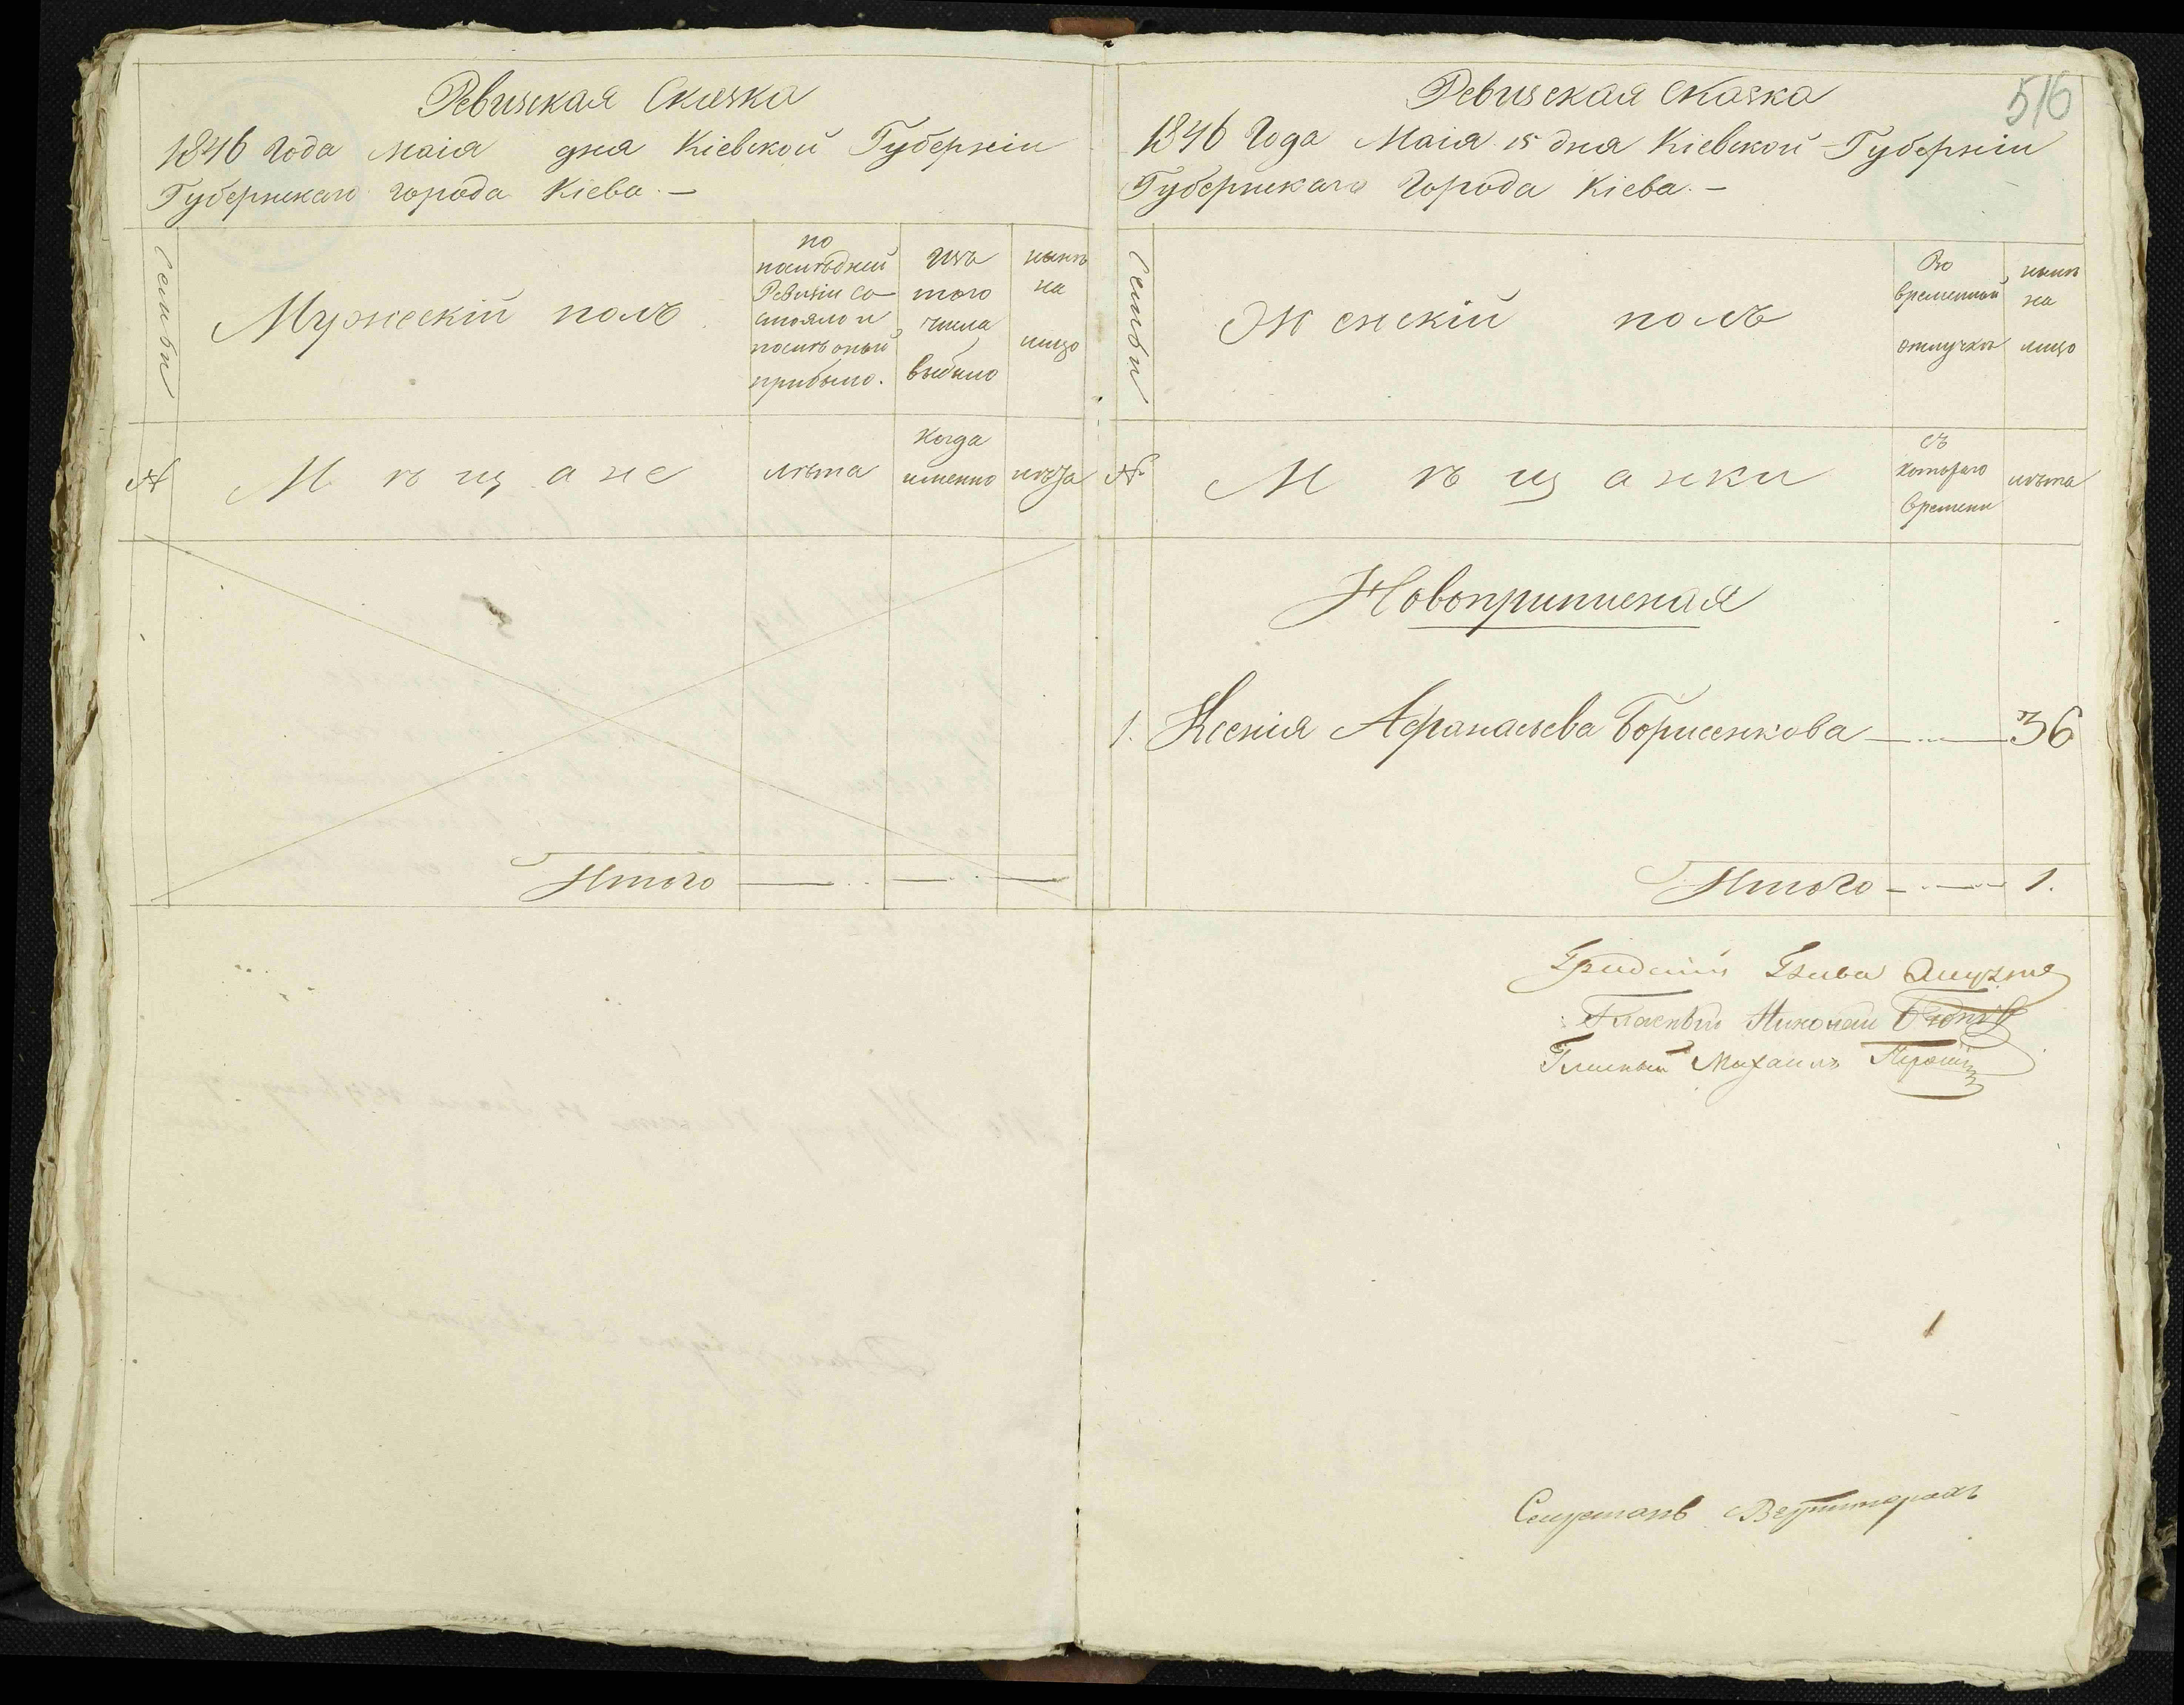 Ревизская Сказка
1846 Года Маія дня Кіевской Губерніи
Губернскаго города Кіева. —
Семьи
Мужескій полъ
по
последней
Ревизіи со-
стояло и
после оный
прибыло.
Изъ
того
числа
выбыло
ныне
на
лицо
№
Мѣщане
лѣта
Когда
именно
лѣта
Итого
516
Ревизская Сказка
1846 Года Маія 15 дня Кіевской Губерніи
Губернскаго Города Кіева. —
Семьи
Женскій полъ
Во
временной
отлучкѣ
ныне
на
лицо
№
Мѣщанки
съ
котораго
времени
лѣта
Новоприписная
1. Ксенія Афанасьева Борисенкова — 36
Итого — 1.
Градскій Глава
Гласный Николай
Гласный Михаилъ